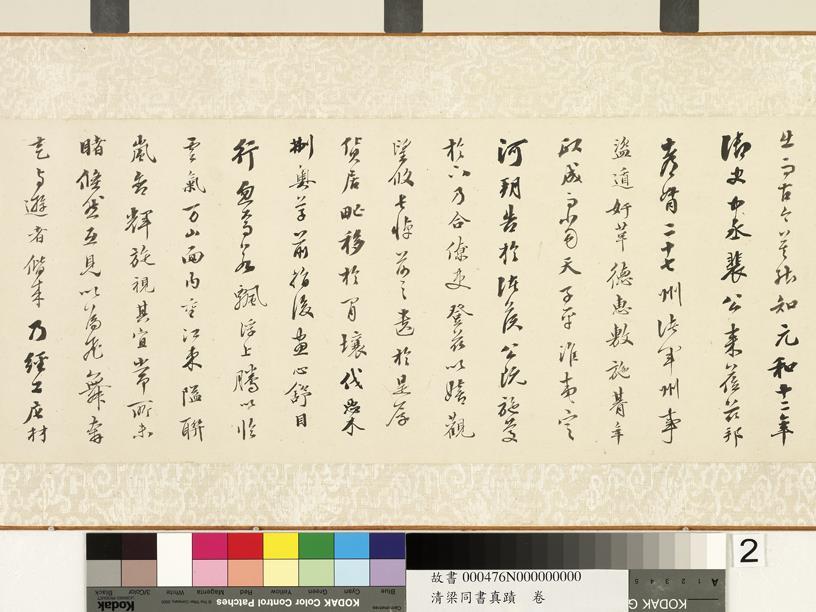 出而古今莫能知元和十二年
御史中丞裴公來蒞茲邦
都督二十七州諸軍州事
盜遁奸革德惠敷施朞年
政成而當天子平淮夷定
河朔告於諸侯公既施慶
於下乃合僚吏登茲以嬉觀
望攸長悼前之遺於是厚
貨居甿移於閒壤伐惡木
刜奧草前指後畫心舒目
行忽焉若飄浮上騰以臨
雲氣万山面内重江束隘聯
嵐含輝旋視其宜常所未
睹倐然互見以為飛舞奔
走与遊者偕來乃經工庀材
2
Blue Cyan Green Yellow Red Magenta White 3/Color Black
KODAK Color Control Patches
Kodak
故書 000476N000000000
清梁同書真蹟 卷
A 1 2 3 4 5
KODAK G